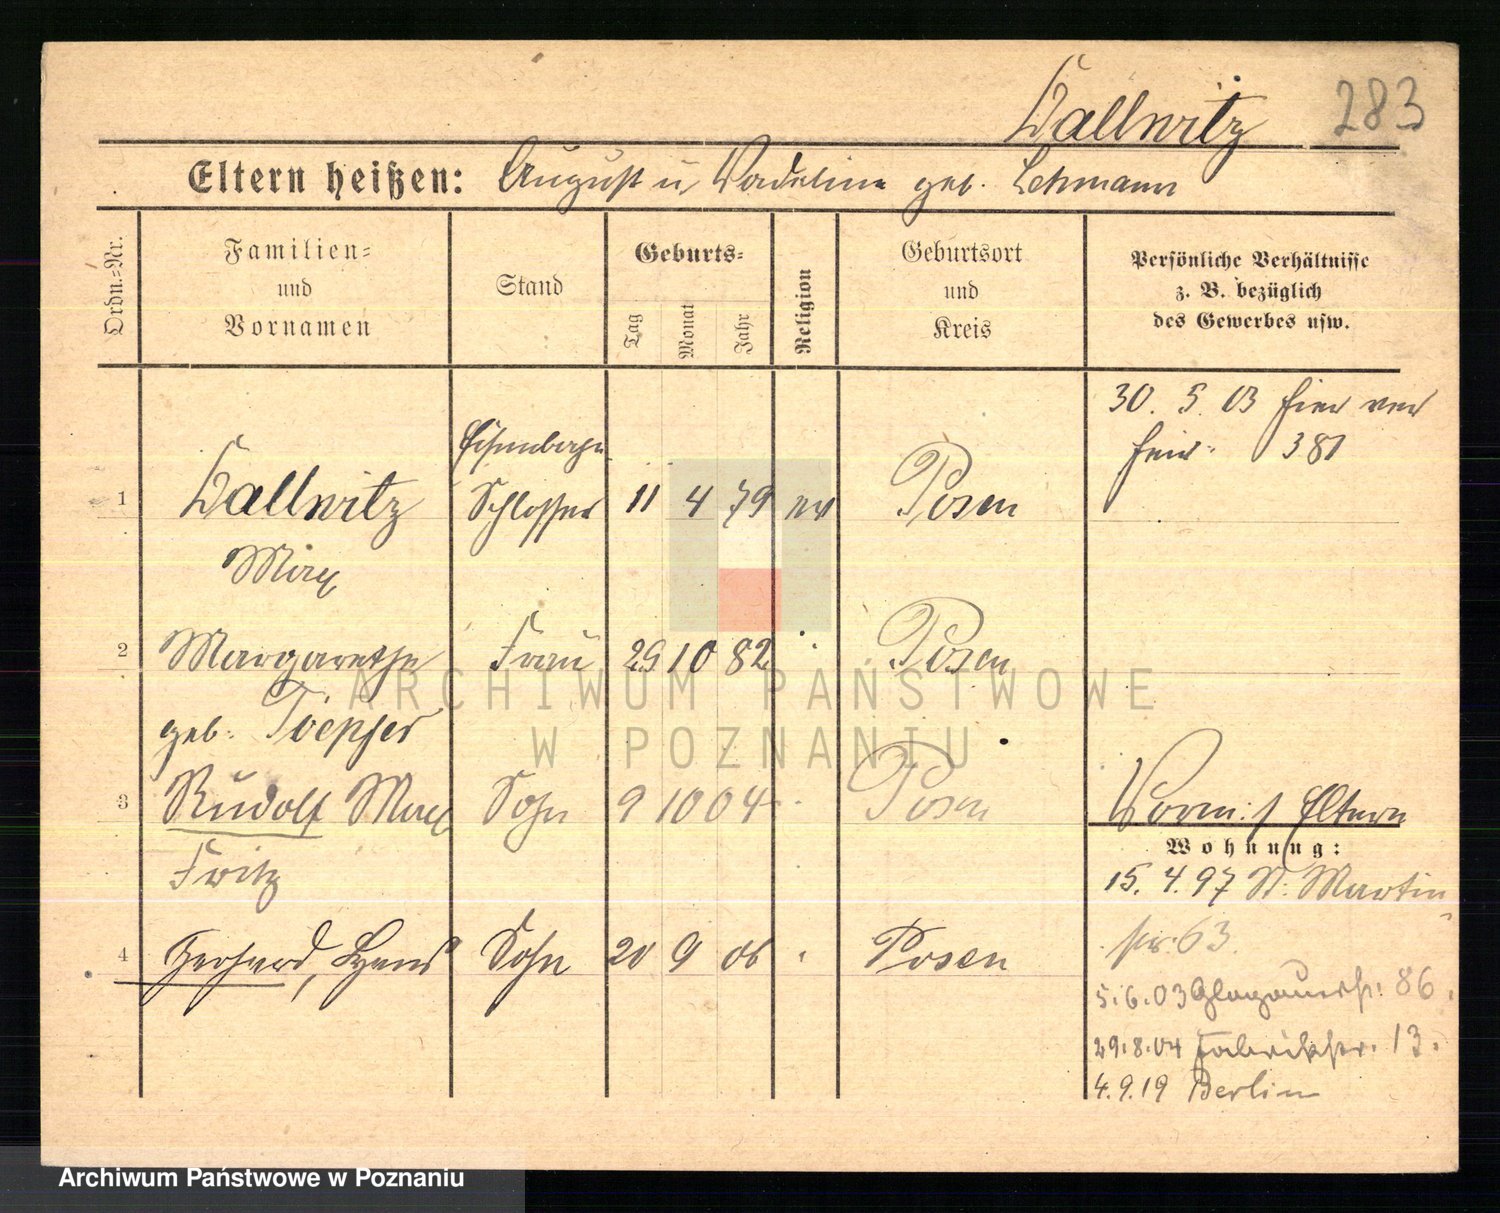 Kallwitz 283
Eltern heißen: August u. geb. Lehmann
Ordn.-Nr.
Familien- und Vornamen
Stand
Geburts-
Tag Monat Jahr
Religion
Geburtsort und Kreis
Persönliche Verhältnisse
z. B. bezüglich
des Gewerbes usw.
30. 5. 03 hier ver
heir. 381
1 Kallwitz Schlosser 11 4 79 ev Posen
Max
2 Margarethe Frau 29 10 82 Posen
geb. Toepfer
3 Rudolf Max Sohn 9 10 04 Posen
Fritz
4 Gerhard, Hans Sohn 20 9 06 Posen
Vorm. s. Eltern
Wohnung:
15. 4. 97 St. Martin
str. 63.
5.6.03 Glogauerstr. 86.
29.8.04 Fabrikstr. 13.
4.9.19 Berlin
ARCHIWUM PAŃSTWOWE
W POZNANIU
Archiwum Państwowe w Poznaniu